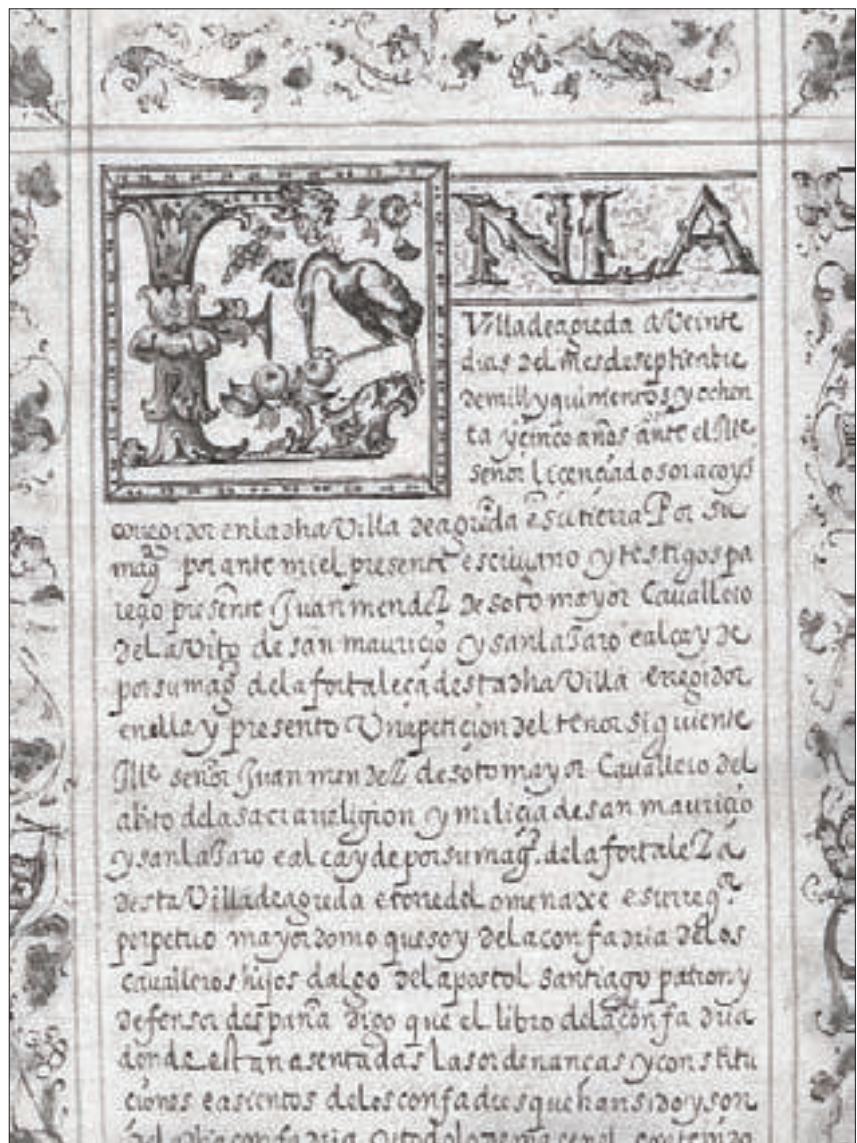 EN LA
Villa de agreda a Veinte
dias del mes de septienbre
de mill y quinientos y ochen
ta y cinco años ante el Ille
señor licenciado soracoys
corregidor en la dha Villa de agreda e su tierra Por su
magd por ante mi el presente escriuano y testigos pa
reçio presente Juan mendez de sotomayor Cauallero
del avito de san mauricio y san laZaro e alcayde
por su magd de la fortaleça desta dha Villa e regidor
en ella y presento Una peticion del tenor siguiente
Ille señor Juan mendeZ de sotomayor Cauallero del
abito de la sacra religion y miliçia de san mauriçio
y san laZaro e alcayde por su magd. de la fortaleZa
desta Villa de agreda e torre del omenaxe e su rregor
perpetuo mayordomo que soy de la confadria de los
caualleros hijos dalgo del apostol santiago patron y
defensor despaña digo que el libro de la confadria
donde estan asentadas las ordenanças y constitu
ciones e asientos de los confadres que han sido y son
del dha confadria